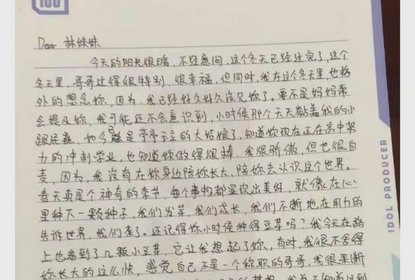 100
Dear 林妹妹
今天的阳光很暖，不经意间，这个冬天已经过完了，这个
冬天里，哥哥过得很特别 很幸福，但同时，我在这个冬天里，也格
外的想念你，因为，我已经好久好久没见你了。要不是妈妈常
会提及你，我可能还不会意识到，小时候那个天天黏着我的小
跟屁虫，如今是亭亭玉立的大姑娘了，知道你现在正在高中努
力的冲刺学业，也知道你做得很棒，我很骄傲，但也很自
责，因为，我没有在你身边陪你长大，陪你去认识这个世界。
春天真是个神奇的季节，每个事物都呈现出美好，就像在心
里种下一颗种子，我们发芽，我们成长，我们不断地在用力的
告诉世界，我们来了。还记得你小时候种得豆芽吗？我今天在路
上也看到了几颗小豆芽，它让我想起了你，有时，我很不舍得
你长大的这么快，感觉自己不是一个称职的哥哥，我很果断
IDOL PRODUCER